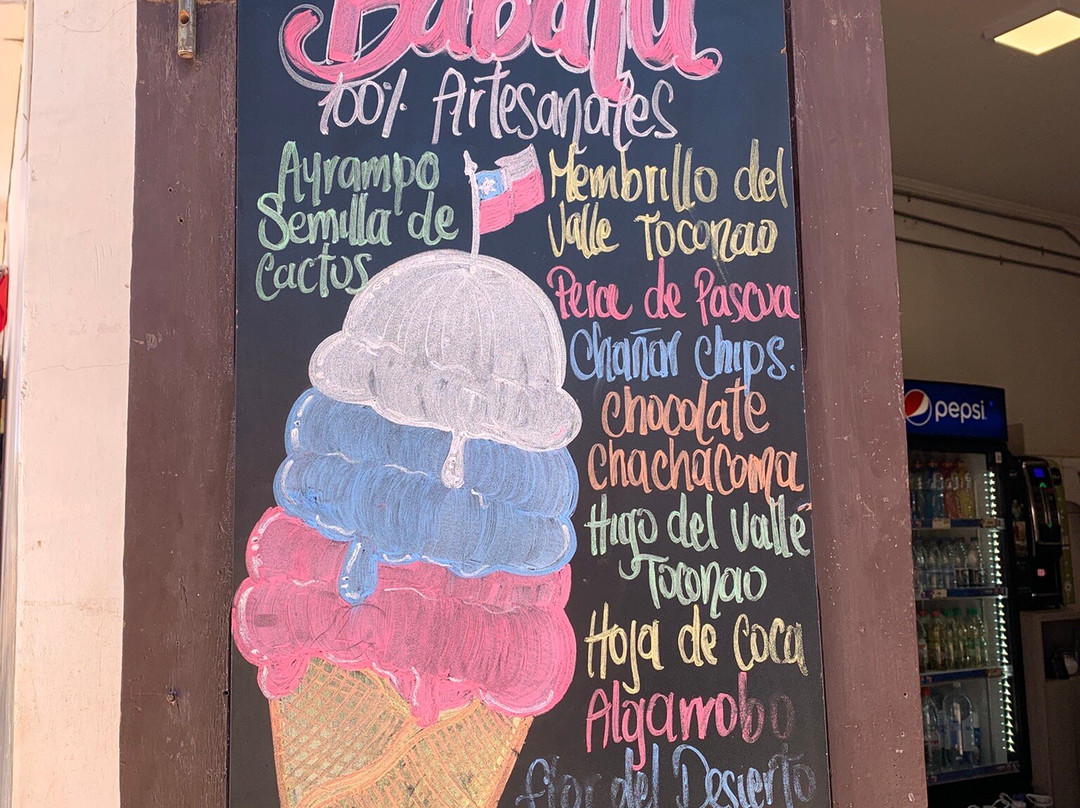 Babalú
100% Artesanales
Ayrampo
Semilla de
Cactus
Membrillo del
Valle Toconao
Pera de Pascua
Chañar chips.
Chocolate
Chachacoma
Higo del Valle
Toconao
Hoja de Coca
Algarrobo
Flor del Desierto
pepsi